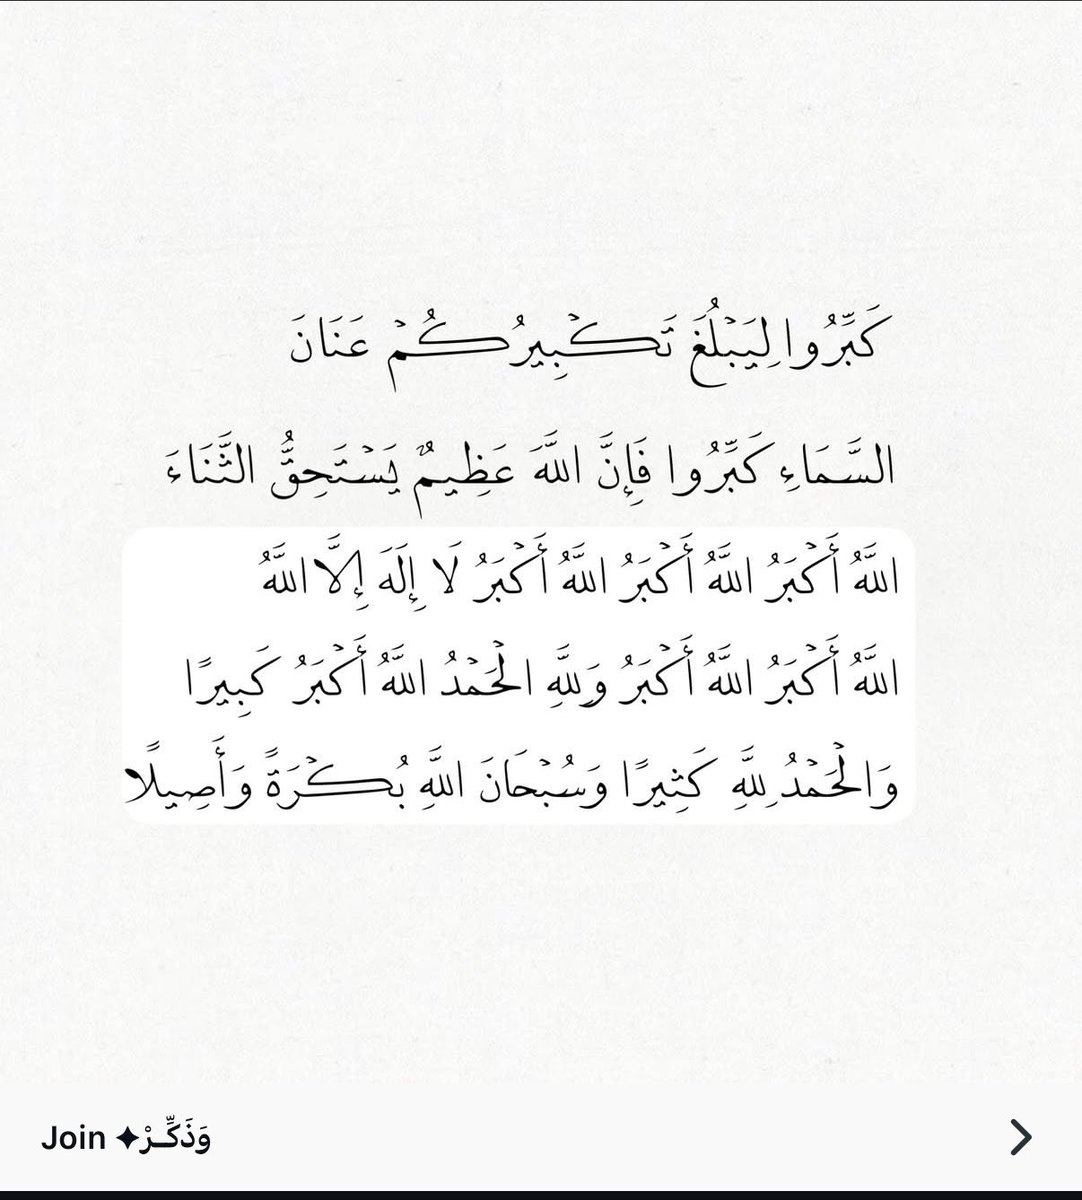 كَبِّرُوا لِيَبْلُغَ تَكْبِيرُكُمْ عَنَانَ
السَّمَاءِ كَبِّرُوا فَإِنَّ اللَّهَ عَظِيمٌ يَسْتَحِقُّ الثَّنَاءَ
اللَّهُ أَكْبَرُ اللَّهُ أَكْبَرُ اللَّهُ أَكْبَرُ لَا إِلَهَ إِلَّا اللَّهُ
اللَّهُ أَكْبَرُ اللَّهُ أَكْبَرُ وَلِلَّهِ الْحَمْدُ اللَّهُ أَكْبَرُ كَبِيرًا
وَالْحَمْدُ لِلَّهِ كَثِيرًا وَسُبْحَانَ اللَّهِ بُكْرَةً وَأَصِيلًا
Join ✦وَذَكِّـرْ